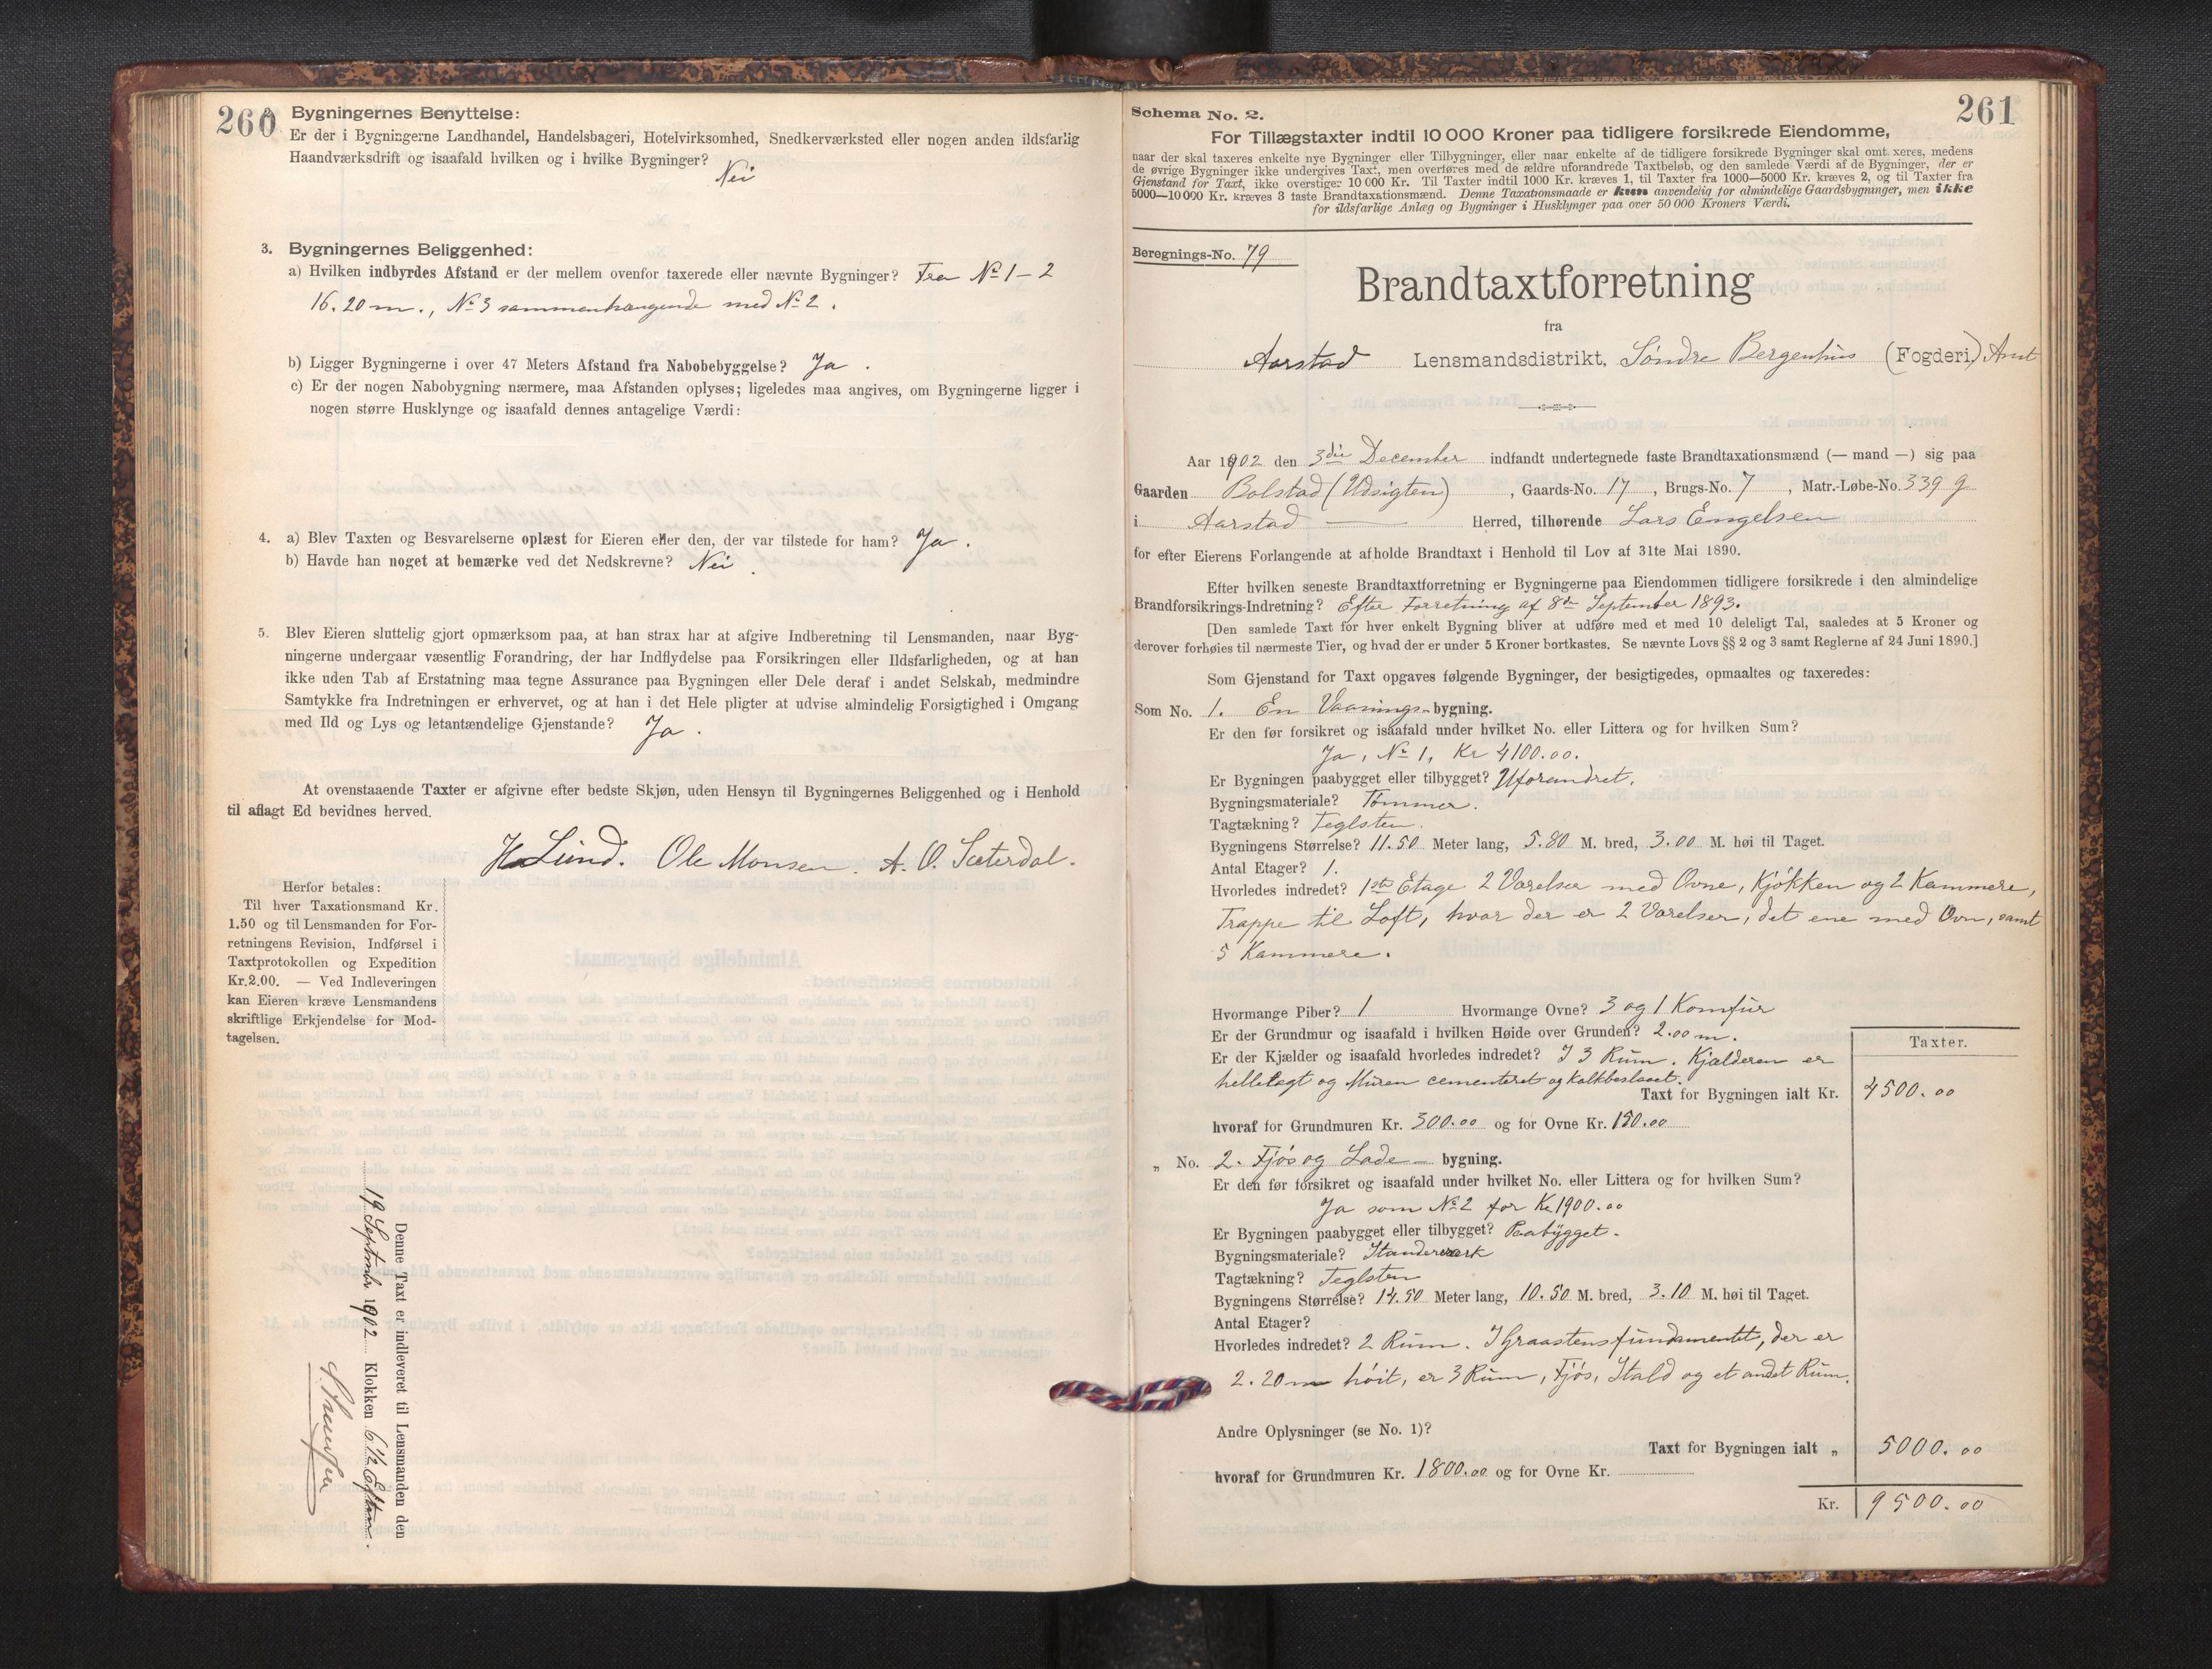 260
Bygningernes Benyttelse:
Er der i Bygningerne Landhandel, Handelsbageri, Hotelvirksomhed, Snedkerværksted eller nogen anden ildsfarlig
Haandværksdrift og isaafald hvilken og i hvilke Bygninger?
Nei
3. Bygningernes Beliggenhed:
a) Hvilken indbyrdes Afstand er der mellem ovenfor taxerede eller nævnte Bygninger? Fra No 1 – 2
16.20 m., No 3 sammenhængende med No 2.
b) Ligger Bygningerne i over 47 Meters Afstand fra Nabobebyggelse? Ja.
c) Er der nogen Nabobygning nærmere, maa Afstanden oplyses; ligeledes maa angives, om Bygningerne ligger i
nogen større Husklynge og isaafald dennes antagelige Værdi:
4. a) Blev Taxten og Besvarelserne oplæst for Eieren eller den, der var tilstede for ham? Ja.
b) Havde han noget at bemærke ved det Nedskrevne? Nei.
5. Blev Eieren sluttelig gjort opmærksom paa, at han strax har at afgive Indberetning til Lensmanden, naar Byg-
ningerne undergaar væsentlig Forandring, der har Indflydelse paa Forsikringen eller Ildsfarligheden, og at han
ikke uden Tab af Erstatning maa tegne Assurance paa Bygningen eller Dele deraf i andet Selskab, medmindre
Samtykke fra Indretningen er erhvervet, og at han i det Hele pligter at udvise almindelig Forsigtighed i Omgang
med Ild og Lys og letantændelige Gjenstande? Ja.
At ovenstaaende Taxter er afgivne efter bedste Skjøn, uden Hensyn til Bygningernes Beliggenhed og i Henhold
til aflagt Ed bevidnes herved.
H Lund. Ole Monsen. A. O. Sæterdal.
Herfor betales:
Til hver Taxationsmand Kr.
1.50 og til Lensmanden for For-
retningens Revision, Indførsel i
Taxtprotokollen og Expedition
Kr. 2.00. — Ved Indleveringen
kan Eieren kræve Lensmandens
skriftlige Erkjendelse for Mod-
tagelsen.
Denne Taxt er indleveret til Lensmanden den
19 September 1902 Klokken 6 1/2 Efterm.
261
Schema No. 2.
For Tillægstaxter indtil 10 000 Kroner paa tidligere forsikrede Eiendomme,
naar der skal taxeres enkelte nye Bygninger eller Tilbygninger, eller naar enkelte af de tidligere forsikrede Bygninger skal omt xeres, medens
de øvrige Bygninger ikke undergives Taxt, men overføres med de ældre uforandrede Taxtbeløb, og den samlede Værdi af de Bygninger, der er
Gjenstand for Taxt, ikke overstiger 10 000 Kr. Til Taxter indtil 1000 Kr. kræves 1, til Taxter fra 1000—5000 Kr. kræves 2, og til Taxter fra
5000—10 000 Kr. kræves 3 faste Brandtaxationsmænd. Denne Taxationsmaade er kun anvendelig for almindelige Gaardsbygninger, men ikke
for ildsfarlige Anlæg og Bygninger i Husklynger paa over 50 000 Kroners Værdi.
Beregnings-No. 79
Brandtaxtforretning
fra
Aarstad Lensmandsdistrikt, Søndre Bergenhus (Fogderi) Amt
Aar 1902 den 3die December indfandt undertegnede faste Brandtaxationsmænd (— mand —) sig paa
Gaarden Bolstad (Udsigten), Gaards-No. 17, Brugs-No. 7, Matr.-Løbe-No. 339 g
i Aarstad Herred, tilhørende Lars Engelsen
for efter Eierens Forlangende at afholde Brandtaxt i Henhold til Lov af 31te Mai 1890.
Efter hvilken seneste Brandtaxtforretning er Bygningerne paa Eiendommen tidligere forsikrede i den almindelige
Brandforsikrings-Indretning? Efter Forretning af 8de September 1893.
[Den samlede Taxt for hver enkelt Bygning bliver at udføre med et med 10 deleligt Tal, saaledes at 5 Kroner og
derover forhøies til nærmeste Tier, og hvad der er under 5 Kroner bortkastes. Se nævnte Lovs §§ 2 og 3 samt Reglerne af 24 Juni 1890.]
Som Gjenstand for Taxt opgaves følgende Bygninger, der besigtigedes, opmaaltes og taxeredes:
Som No. 1. En Vaanings-bygning.
Er den før forsikret og isaafald under hvilket No. eller Littera og for hvilken Sum?
Ja, No 1, Kr 4100.00.
Er Bygningen paabygget eller tilbygget? Uforandret.
Bygningsmateriale? Tømmer.
Tagtækning? Teglsten.
Bygningens Størrelse? 11.50 Meter lang, 5.80 M. bred, 3.00 M. høi til Taget.
Antal Etager? 1.
Hvorledes indredet? 1ste Etage 2 Værelser med Ovne, Kjøkken og 2 Kammere,
Trappe til Loft, hvor der er 2 Værelser, det ene med Ovn, samt
5 Kammere.
Hvormange Piber? 1 Hvormange Ovne? 3 og 1 Komfur
Er der Grundmur og isaafald i hvilken Høide over Grunden? 2.00 m.
Er der Kjælder og isaafald hvorledes indredet? I 3 Rum. Kjælderen er
hellelagt og Muren cementeret og kalkbeslaaet.
Taxter.
Taxt for Bygningen ialt Kr. 4500.00
hvoraf for Grundmuren Kr. 300.00 og for Ovne Kr. 150.00
„ No. 2. Fjøs og Lade — bygning.
Er den før forsikret og isaafald under hvilket No. eller Littera og for hvilken Sum?
Ja som No 2 for Kr. 1900.00
Er Bygningen paabygget eller tilbygget? Paabygget.
Bygningsmateriale? Standerværk
Tagtækning? Teglsten
Bygningens Størrelse? 14.50 Meter lang, 10.50 M. bred, 3.10 M. høi til Taget.
Antal Etager?
Hvorledes indredet? 2 Rum. I Graastensfundamentet, der er
2.20 m høit, er 3 Rum, Fjøs, Stald og et andet Rum.
Andre Oplysninger (se No. 1)?
Taxt for Bygningen ialt „ 5000.00
hvoraf for Grundmuren Kr. 1800.00 og for Ovne Kr.
Kr. 9500.00